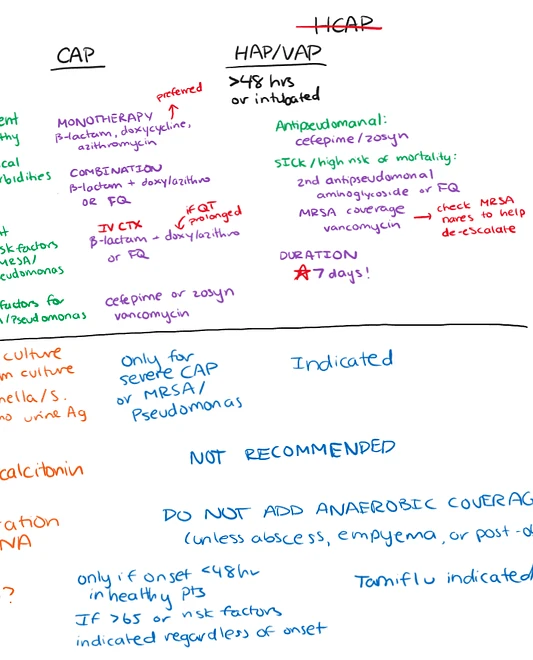 HCAP
CAP
HAP/VAP
>48 hrs
or intubated
preferred
MONOTHERAPY
β-lactam, doxycycline,
azithromycin
COMBINATION
β-lactam + doxy/azithro
OR FQ
if QT
prolonged
IV CTX
β-lactam + doxy/azithro
or FQ
cefepime or zosyn
vancomycin
Antipseudomonal:
cefepime/zosyn
SICK/high risk of mortality:
2nd antipseudomonal
aminoglycoside or FQ
MRSA coverage
vancomycin → check MRSA
nares to help
de-escalate
DURATION
☆ 7 days!
ent
thy
cal
rbidities
nt
sk factors
MRSA/
eudomonas
factors for
/Pseudomonas
culture
m culture
nella/S.
no urine Ag
Only for
severe CAP
or MRSA/
Pseudomonas
Indicated
calcitonin
NOT RECOMMENDED
ration
NA
DO NOT ADD ANAEROBIC COVERAG
(unless abscess, empyema, or post-o
?
only if onset <48hr
in healthy pts
If >65 or risk factors
indicated regardless of onset
Tamiflu indicated